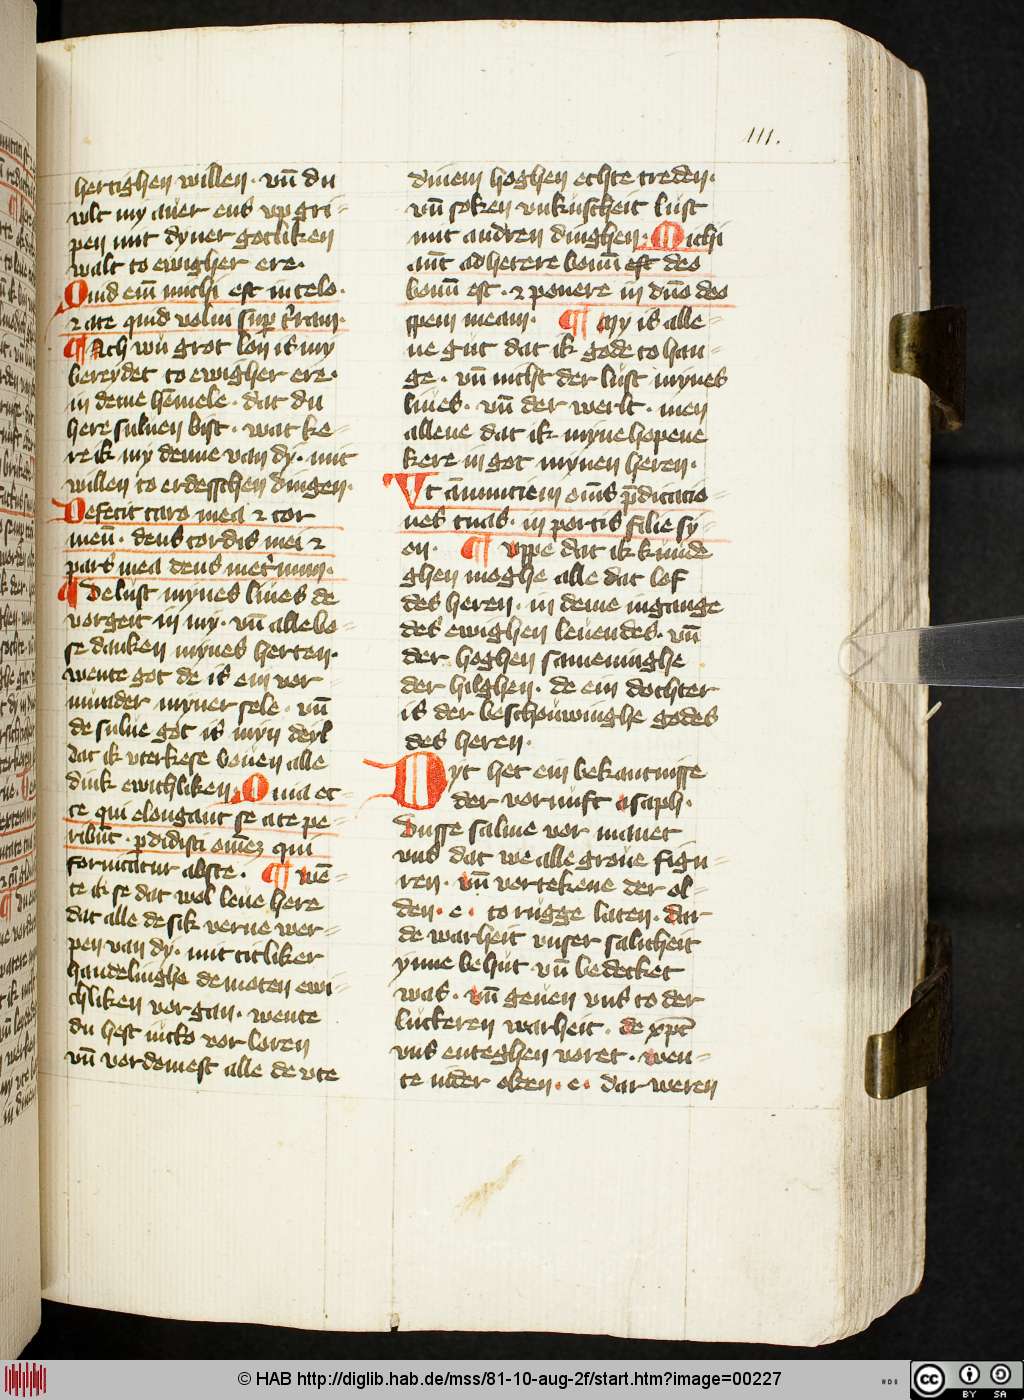 111.
hertighen willen · vn̄ du
wlt my auer ens vp gri=
pen mit dyner gotliken
walt to ewigher ere·
Quid em̄ michi est in celo·
⁊ a te quid volui sup̱ t̄ram·
¶ Ach wu grot lon is my
bereydet to ewigher ere·
in deme hēmele · dat du
here suluen bist · wat ke=
re ik my denne van dy· mit
willen to erdesschen dingen·
Defecit caro mea ⁊ cor
meū · deus cordis mei ⁊
pars mea deus inet̄num·
¶ De lust mynes liues de
vorgeit in my· vn̄ alle bo=
se danken mynes herten·
wente got de is ein vor=
munder myner sele · vn̄
de sulue got is myn deyl
dat ik vterkese bouen alle
dink ewichliken· Q uia ec=
ce qui elongant se a te pe=
ribūt · p̱didisti om̄eʒ qui
fornicatur abs te · ¶ wē=
te ik se dat wol leue here
dat alle de sik verne wer=
pen van dy · mit titliker
handelinghe de moten ewi=
chliken vorgan · wente
du hest ... vor loren
vn̄ vordomest alle de vte
dinem hoghen echte treden·
vn̄ soken vnkuscheit lust
mit andren dinghen· Michi
aūt adherere bonū est deo
bonū est · ⁊ ponere in dn̄o deo
spem meam · ¶ My is alle=
ne gut dat ik gode to han=
ge · vn̄ nicht der lust mynes
liues · vn̄ der werlt · men
allene dat ik myne hopene
kere in got mynen heren·
Vt ānunciem om̄s p̄dicatio=
nes tuas · in portis filie sy=
on · ¶ vppe dat ik kunde
ghen moghe alle dat lof
des heren · in deme ingange
des ewighen leuendes· vn̄
der hoghen sameninghe
der hilghen · de ein dochter
is der beschouwinghe godes
des heren ·
Dyt het ein bekantnisse
der vornuft asaph·
Dusse salme vor manet
vns dat we alle groue figu=
ren · vn̄ vortekene der ol=
den · e · to rugge laten · dar
de warheit vnser salicheit
ynne behut vn̄ bedecket
was · vn̄ geuen vns to der
luckeren warheit · de xp̄c
vns enteghen voret · wen=
te in der olden · e · dar weren
© HAB http://diglib.hab.de/mss/81-10-aug-2f/start.htm?image=00227
HAB
cc BY SA